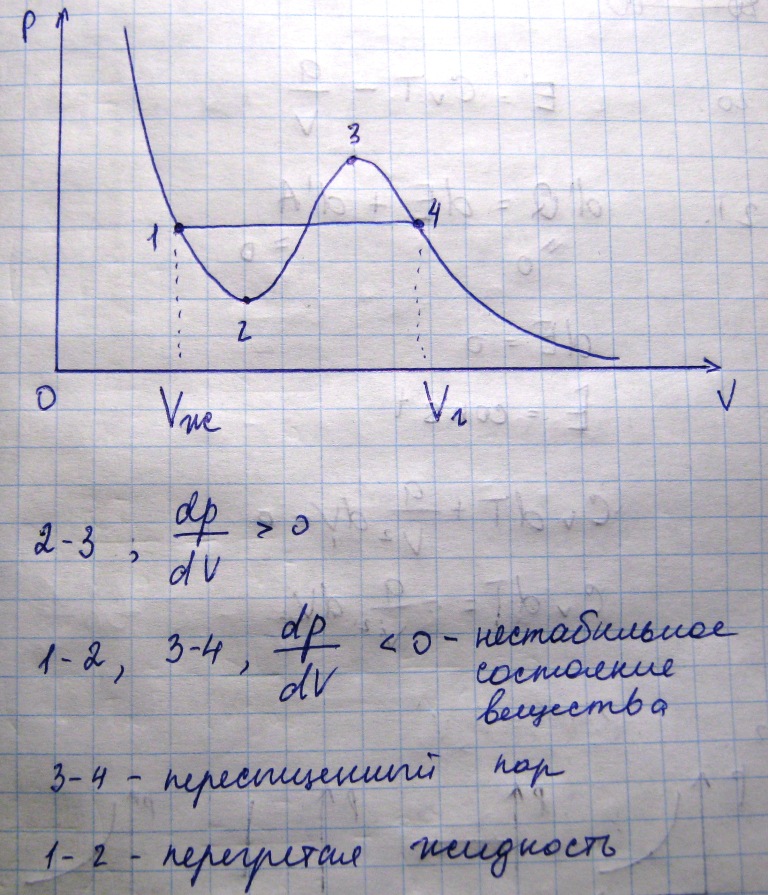 P
3
1
4
2
0
Vж
Vг
V
2-3 , dp/dV > 0
1-2, 3-4, dp/dV < 0 - нестабильное
состояние
вещества
3-4 - пересыщенный пар
1-2 - перегретая жидкость